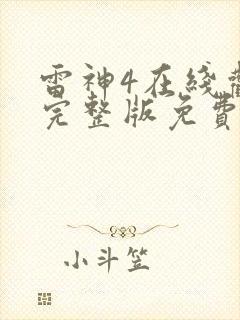 雷神4在线
完整版免费
小斗笠